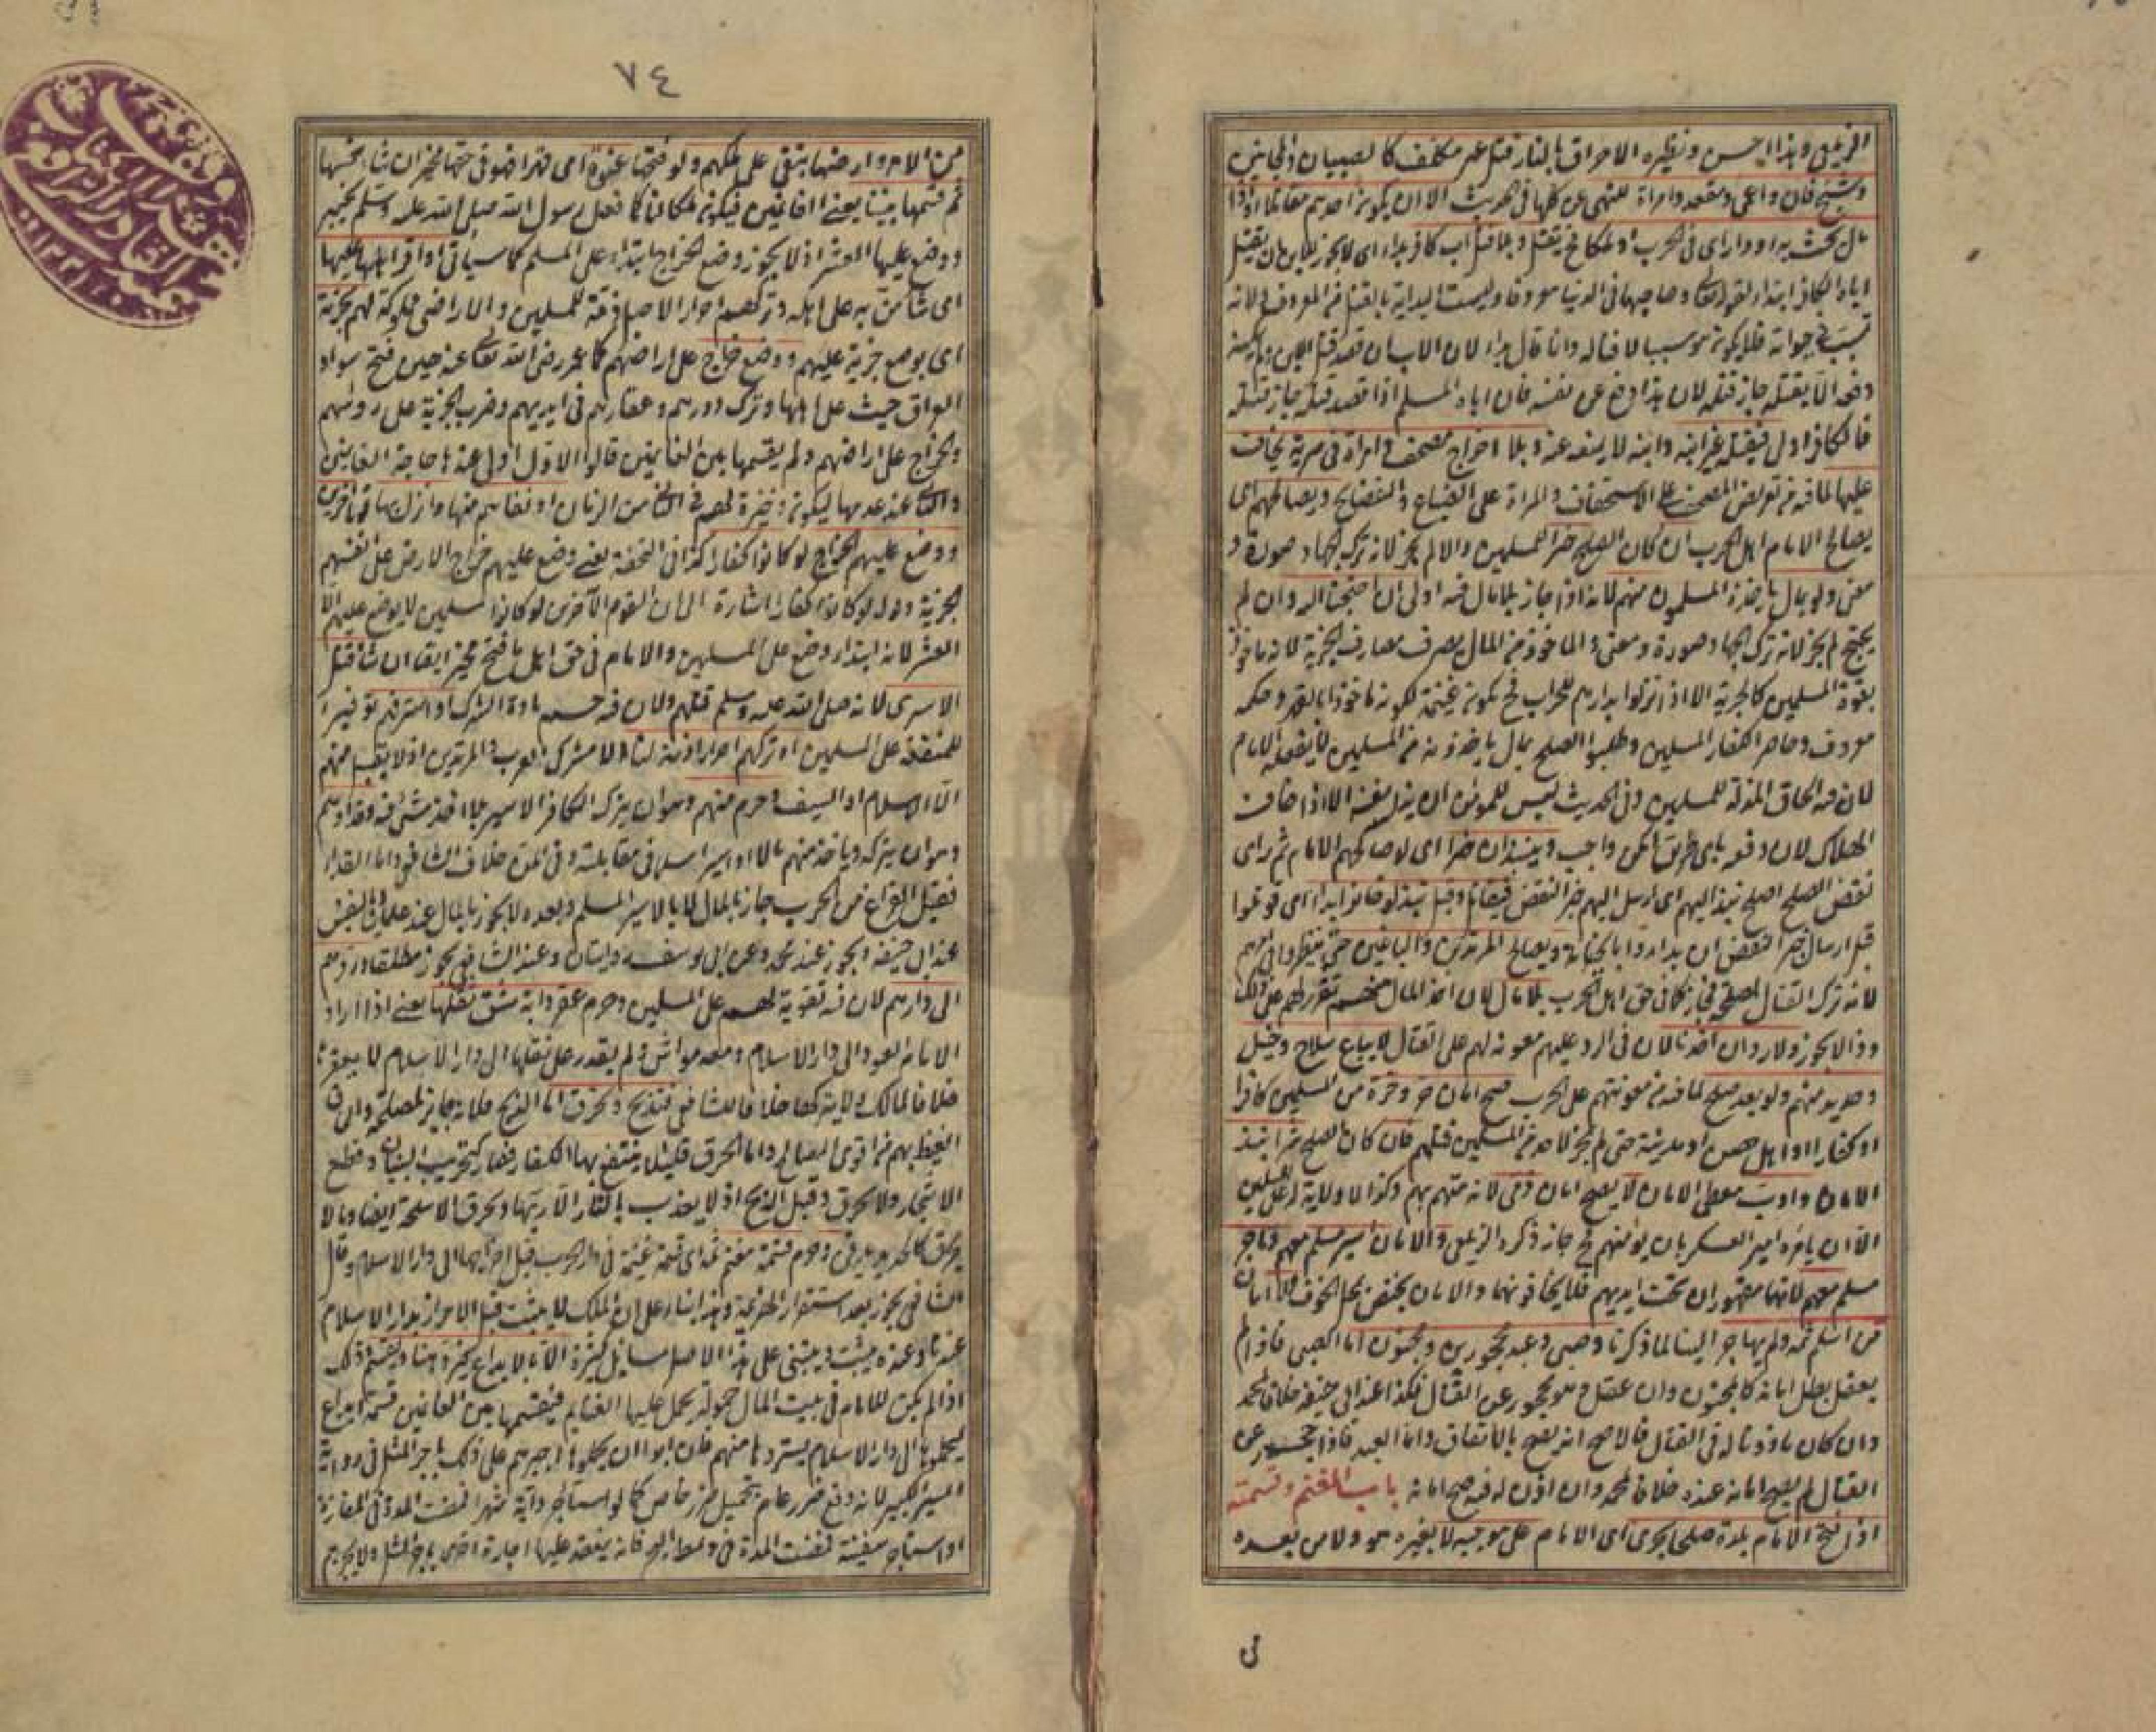 الزيلعي وهذا احسن ونظيره الاحراق بالنار قتل غير مكلف كالصبيان والمجانين
وشيخ فان واعمى ومقعد وامراة للنهي عن كلها في الحديث الا ان يكون احدهم مقاتلا او ذا
مال يحث به او ذا راي في الحرب او ملكا فح يقتل وبلا قتل اب كافر بداء اي لا يجوز للابن ان يقتل
اباه الكافر ابتداء لقوله تعالى وصاحبهما في الدنيا معروفا وليست البداية بالقتل من المعروف ولانه
تسبب في حيوته فلا يكون هو سببا لافنائه وانما قال بداء لان الاب ان قصد قتل الابن ولم يمكنه
دفعه الا بقتله جاز قتله لان هذا دفع عن نفسه فان اباه المسلم اذا قصد قتله جاز قتله
فالكافر اولى فيقتله غير ابنه وابنه لا يمنعه عنه وبلا اخراج مصحف وامراة في سرية يخاف
عليها لما فيه من تعريض المصحف على الاستخفاف والمراة على الضياع والفضايح ويصالحهم اي
يصالح الامام اهل الحرب ان كان الصلح خيرا للمسلمين والا لم يجز لانه ترك الجهاد صورة و
معنى ولو بمال ياخذه المسلمون منهم لانه اذا جاز بلا مال فبه اولى ان احتيج اليه وان لم
يحتج لم يجز لانه ترك الجهاد صورة ومعنى والماخوذ من المال يصرف مصارف الجزية لانه ماخوذ
بقوة المسلمين كالجزية الا اذا نزلوا بدارهم للحراب فح يكون غنيمة لكونه ماخوذا بالقهر وحكمه
معروف وحاصر الكفار المسلمين وطلبوا الصلح بمال ياخذونه من المسلمين لا يفعله الامام
لان فيه الحاق المذلة للمسلمين وفي الحديث ليس للمؤمن ان يذل نفسه الا اذا خاف
الهلاك لان دفعه باي طريق امكن واجب وينبذ ان خيرا اي لو صالحهم الامام ثم راى
نقض الصلح اصلح نبذ اليهم اي ارسل اليهم خبر النقض فيقاتل وقبل نبذ لو خانوا بداء اي قوتلوا
قبل ارسال خبر النقض ان بداوا بالخيانة ويصالح المرتدين والباغين حتى ينظروا في امرهم
لانه ترك القتال لمصلحة فجاز كما في حق اهل الحرب بلا مال لان اخذ المال منهم تقريرهم على ذلك
وذا لا يجوز ولا رد ان اخذنا لان في الرد عليهم معونة لهم على القتال لا يباع سلاح وخيل
وحديد منهم ولو بعد صلح لما فيه من معونتهم على الحرب صح امان حر وحرة من المسلمين كافرا
او كفارا او اهل حصن او مدينة حتى لم يجز لاحد من المسلمين قتلهم فان كان الصلح شرا نبذ
الامان وادب معطي الامان لا يصح امان ذمي لانه متهم بهم وكذا لا ولاية له على المسلمين
الا ان يامره امير العسكر بان يؤمنهم فح جاز ذكره الزيلعي والامان اسير مسلم معهم وتاجر
مسلم معهم لانهما مقهوران تحت ايديهم فلا يخافونهما والامان يختص بمحل الخوف ولا امان
من اسلم ثمه ولم يهاجر الينا لما ذكرنا وصبي وعبد محجورين ومجنون اما الصبي فاذا لم
يعقل بطل امانه كالمجنون وان عقل وهو محجور عن القتال فكذا عند ابي حنيفة خلافا لمحمد
وان كان ماذونا له في القتال فالاصح انه يصح بالاتفاق واما العبد فاذا حجر عن
القتال لم يصح امانه عنده خلافا لمحمد وان اذن له فيه صح امانه باب المغنم وقسمته
اذا فتح الامام بلدة صلحا يجرى اى الامام على موجبه لا يغيره هو ولا من بعده
ى
٧٤
من الامراء وارضها يبقى على ملكهم ولو فتحها عنوة اى قهرا فهو في حقها مخير ان شاء خمسها
ثم قسمها بيننا يعني الغانمين فيكون ملكا لنا كما فعل رسول الله صلى الله عليه وسلم بخيبر
ووضع عليها العشر اذ لا يجوز وضع الخراج ابتداء على المسلم كما سياتي او اقر اهلها عليها
اى شاء من به على اهله وتركهم احرار الاصل ذمة للمسلمين والاراضي مملوكة لهم بجزية
اى بوضع جزية عليهم ووضع خراج على اراضيهم كما عمر رضي الله تعالى عنه حين فتح سواد
العراق حيث من على اهلها وترك دورهم وعقارهم في ايديهم وضرب الجزية على رؤسهم
والخراج على اراضيهم ولم يقسمها بين الغانمين قالوا الاول اولى عند حاجة الغانمين
والثاني عند عدمها ليكون ذخيرة لهم في الثاني من الزمان او نفاهم منها وانزل بها قوما اخرين
ووضع عليهم الخراج لو كانوا كفارا كذا في التحفة يعني وضع عليهم خراج الارض على انفسهم
الجزية وقوله لو كانوا كفارا اشارة الى ان القوم الاخرين لو كانوا مسلمين لا يوضع عليهم الا
العشر لانه ابتداء وضع على المسلمين والامام في حق اهل ما فتح مخير ايضا ان شاء قتل
الاسرى لانه صلى الله عليه وسلم قتلهم ولان فيه حسم مادة الشرك او استرقهم توفيرا
للمنفعة على المسلمين او تركهم احرارا ذمة لنا الا مشركي العرب والمرتدين اذ لا يقبل منهم
الا الاسلام او السيف وحرم منهم وهو ان يترك الكافر الاسير بلا اخذ شئ منه وفداؤهم
وهو ان يتركه وياخذ منهم مالا او اسيرا مسلما في مقابلته وفي المن خلاف الشافعي واما الفداء
فقبل الفراغ من الحرب جاز بالمال لا بالاسير المسلم وبعده لا يجوز بالمال عند علمائنا ولا بالنفس
عند ابي حنيفة ويجوز عند محمد وعن ابي يوسف روايتان وعند الشافعي يجوز مطلقا وردهم
الى دارهم لان فيه تقوية لهم على المسلمين وحرم عقر دابة شق نقلها يعني اذا اراد
الامام العود الى دار الاسلام ومعه مواش ولم يقدر على نقلها الى دار الاسلام لا يعقرها
خلافا لمالك ولا يتركها خلافا للشافعي فتذبح وتحرق اما الذبح فلانه جاز لمصلحة والحاق
الغيظ بهم من اقوى المصالح واما الحرق فلئلا ينتفع بها الكفار فصار كتخريب البنيان وقطع
الاشجار ولا يحرق قبل الذبح اذ لا يعذب بالنار الا ربها وتحرق الاسلحة ايضا وما لا
يحرق كالحديد يدفن وحرم قسمة مغنم ثمه اى قسمة غنيمة في دار الحرب قبل اخراجها الى دار الاسلام وقال
الشافعي يجوز بعد استقرار الهزيمة وهذا بناء على ان الملك لا يثبت قبل الاحراز بدار الاسلام
عندنا وعنده يثبت ويبتنى على هذا الاصل مسائل كثيرة الا بالايداع كثيرة هنا ويقسم ذلك
اذا لم يكن للامام في بيت المال حمولة يحمل عليها الغنايم فيقسمها بين الغانمين قسمة ايداع
ليحملوها الى دار الاسلام ثم يستردها منهم فان ابوا ان يحملوا اجبرهم على ذلك باجر المثل في رواية
السير الكبير لانه دفع ضرر عام بتحميل ضرر خاص كما لو استاجر دابة شهرا فمضت المدة في المفازة
او استاجر سفينة فمضت المدة في وسط البحر فانه ينعقد عليها اجارة اخرى باجر المثل ولا يجبرهم